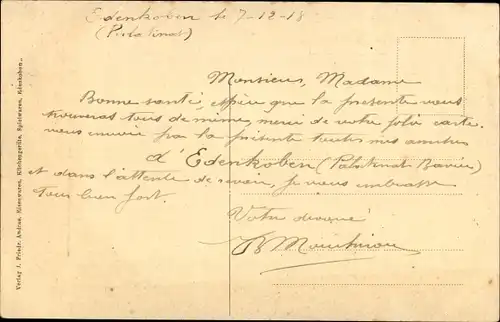 Edenkoben le 7-12-18
(Palatinat)
Monsieur, Madame
Bonne santé, espère que la présente vous
trouveras tous de même, merci de votre jolie carte
vous envoie par la présente toutes mes amitiés
d'Edenkoben (Palatinat Bavière)
et dans l'attente de revoir, je vous embrasse
Tous bien fort.
Votre dévoué
Verlag J. Friedr. Andrae, Eisenwaren, Küchengeräte, Spielwaren, Edenkoben.